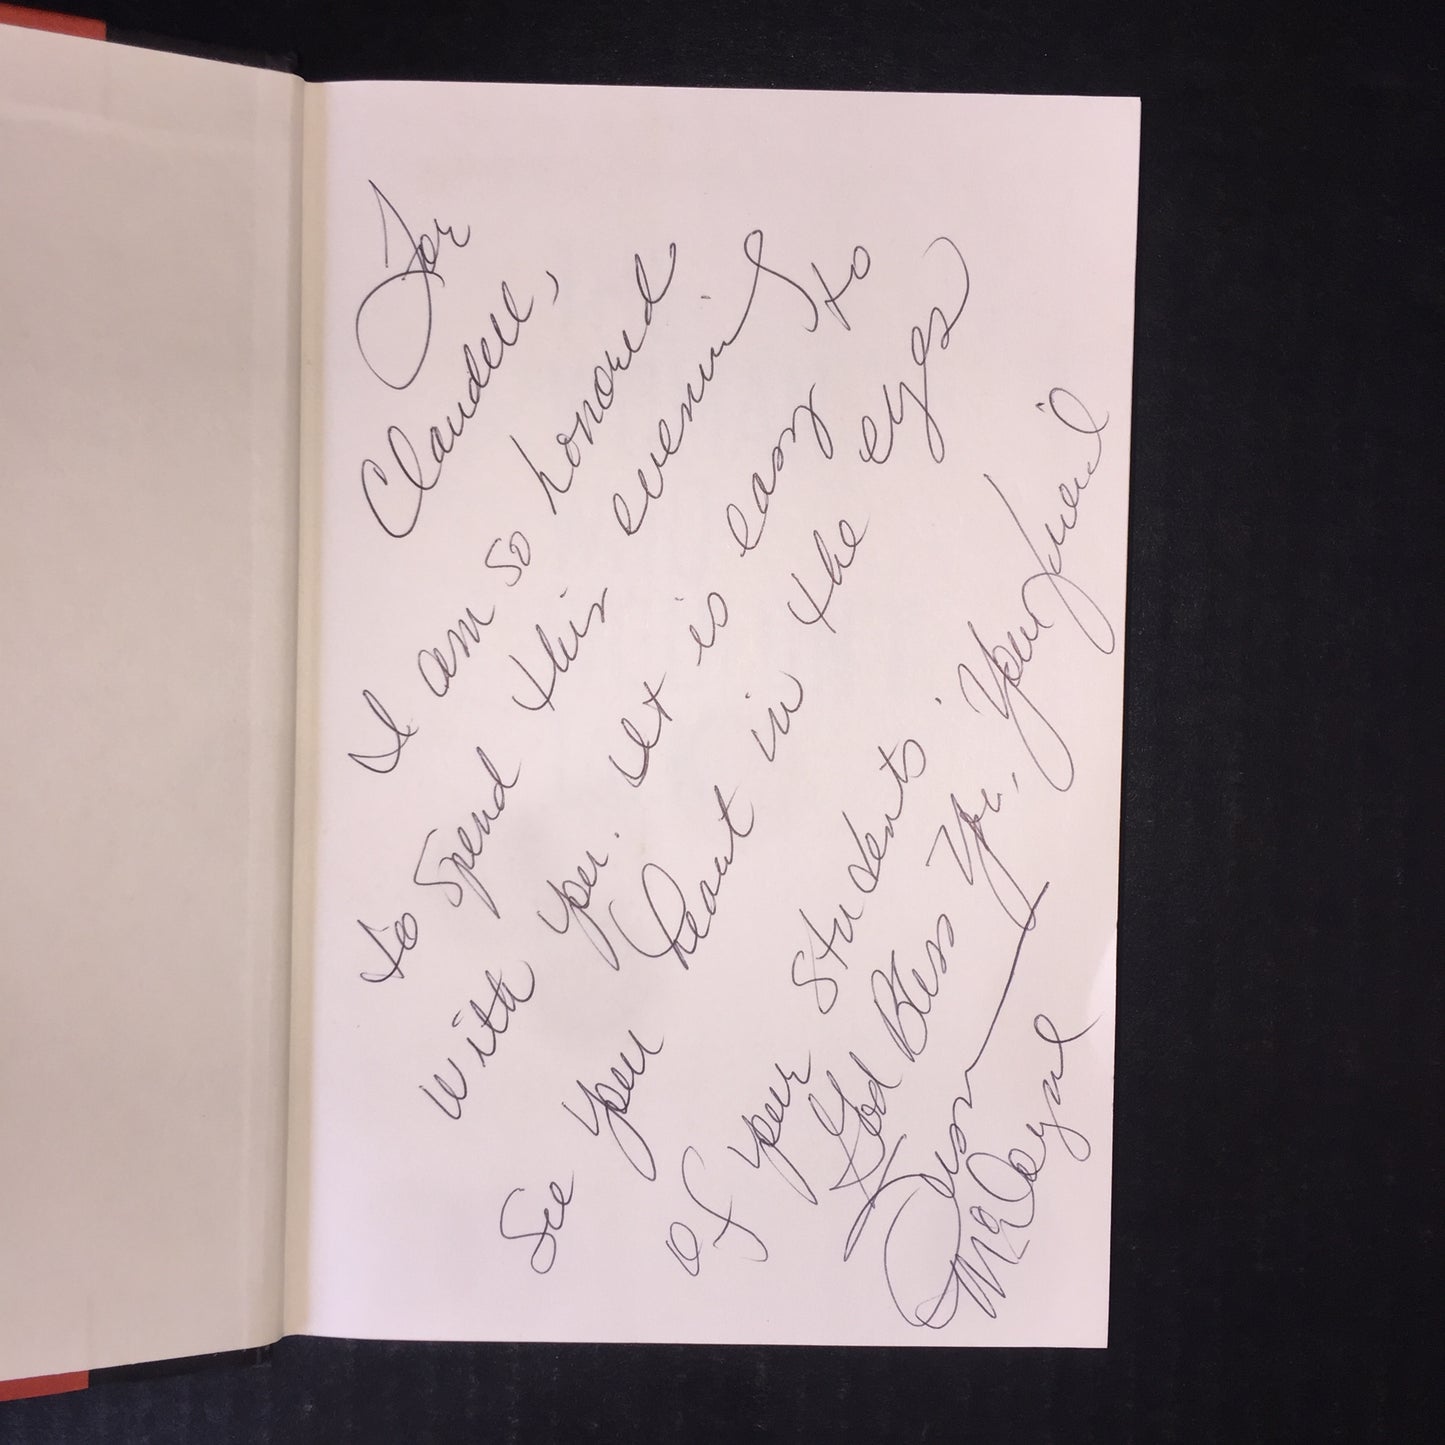 For
Claudell,
I am so honored
to spend this evening
with you. It is easy to
see your heart in the eyes
of your students.
God Bless You. Your friend
McDaniel